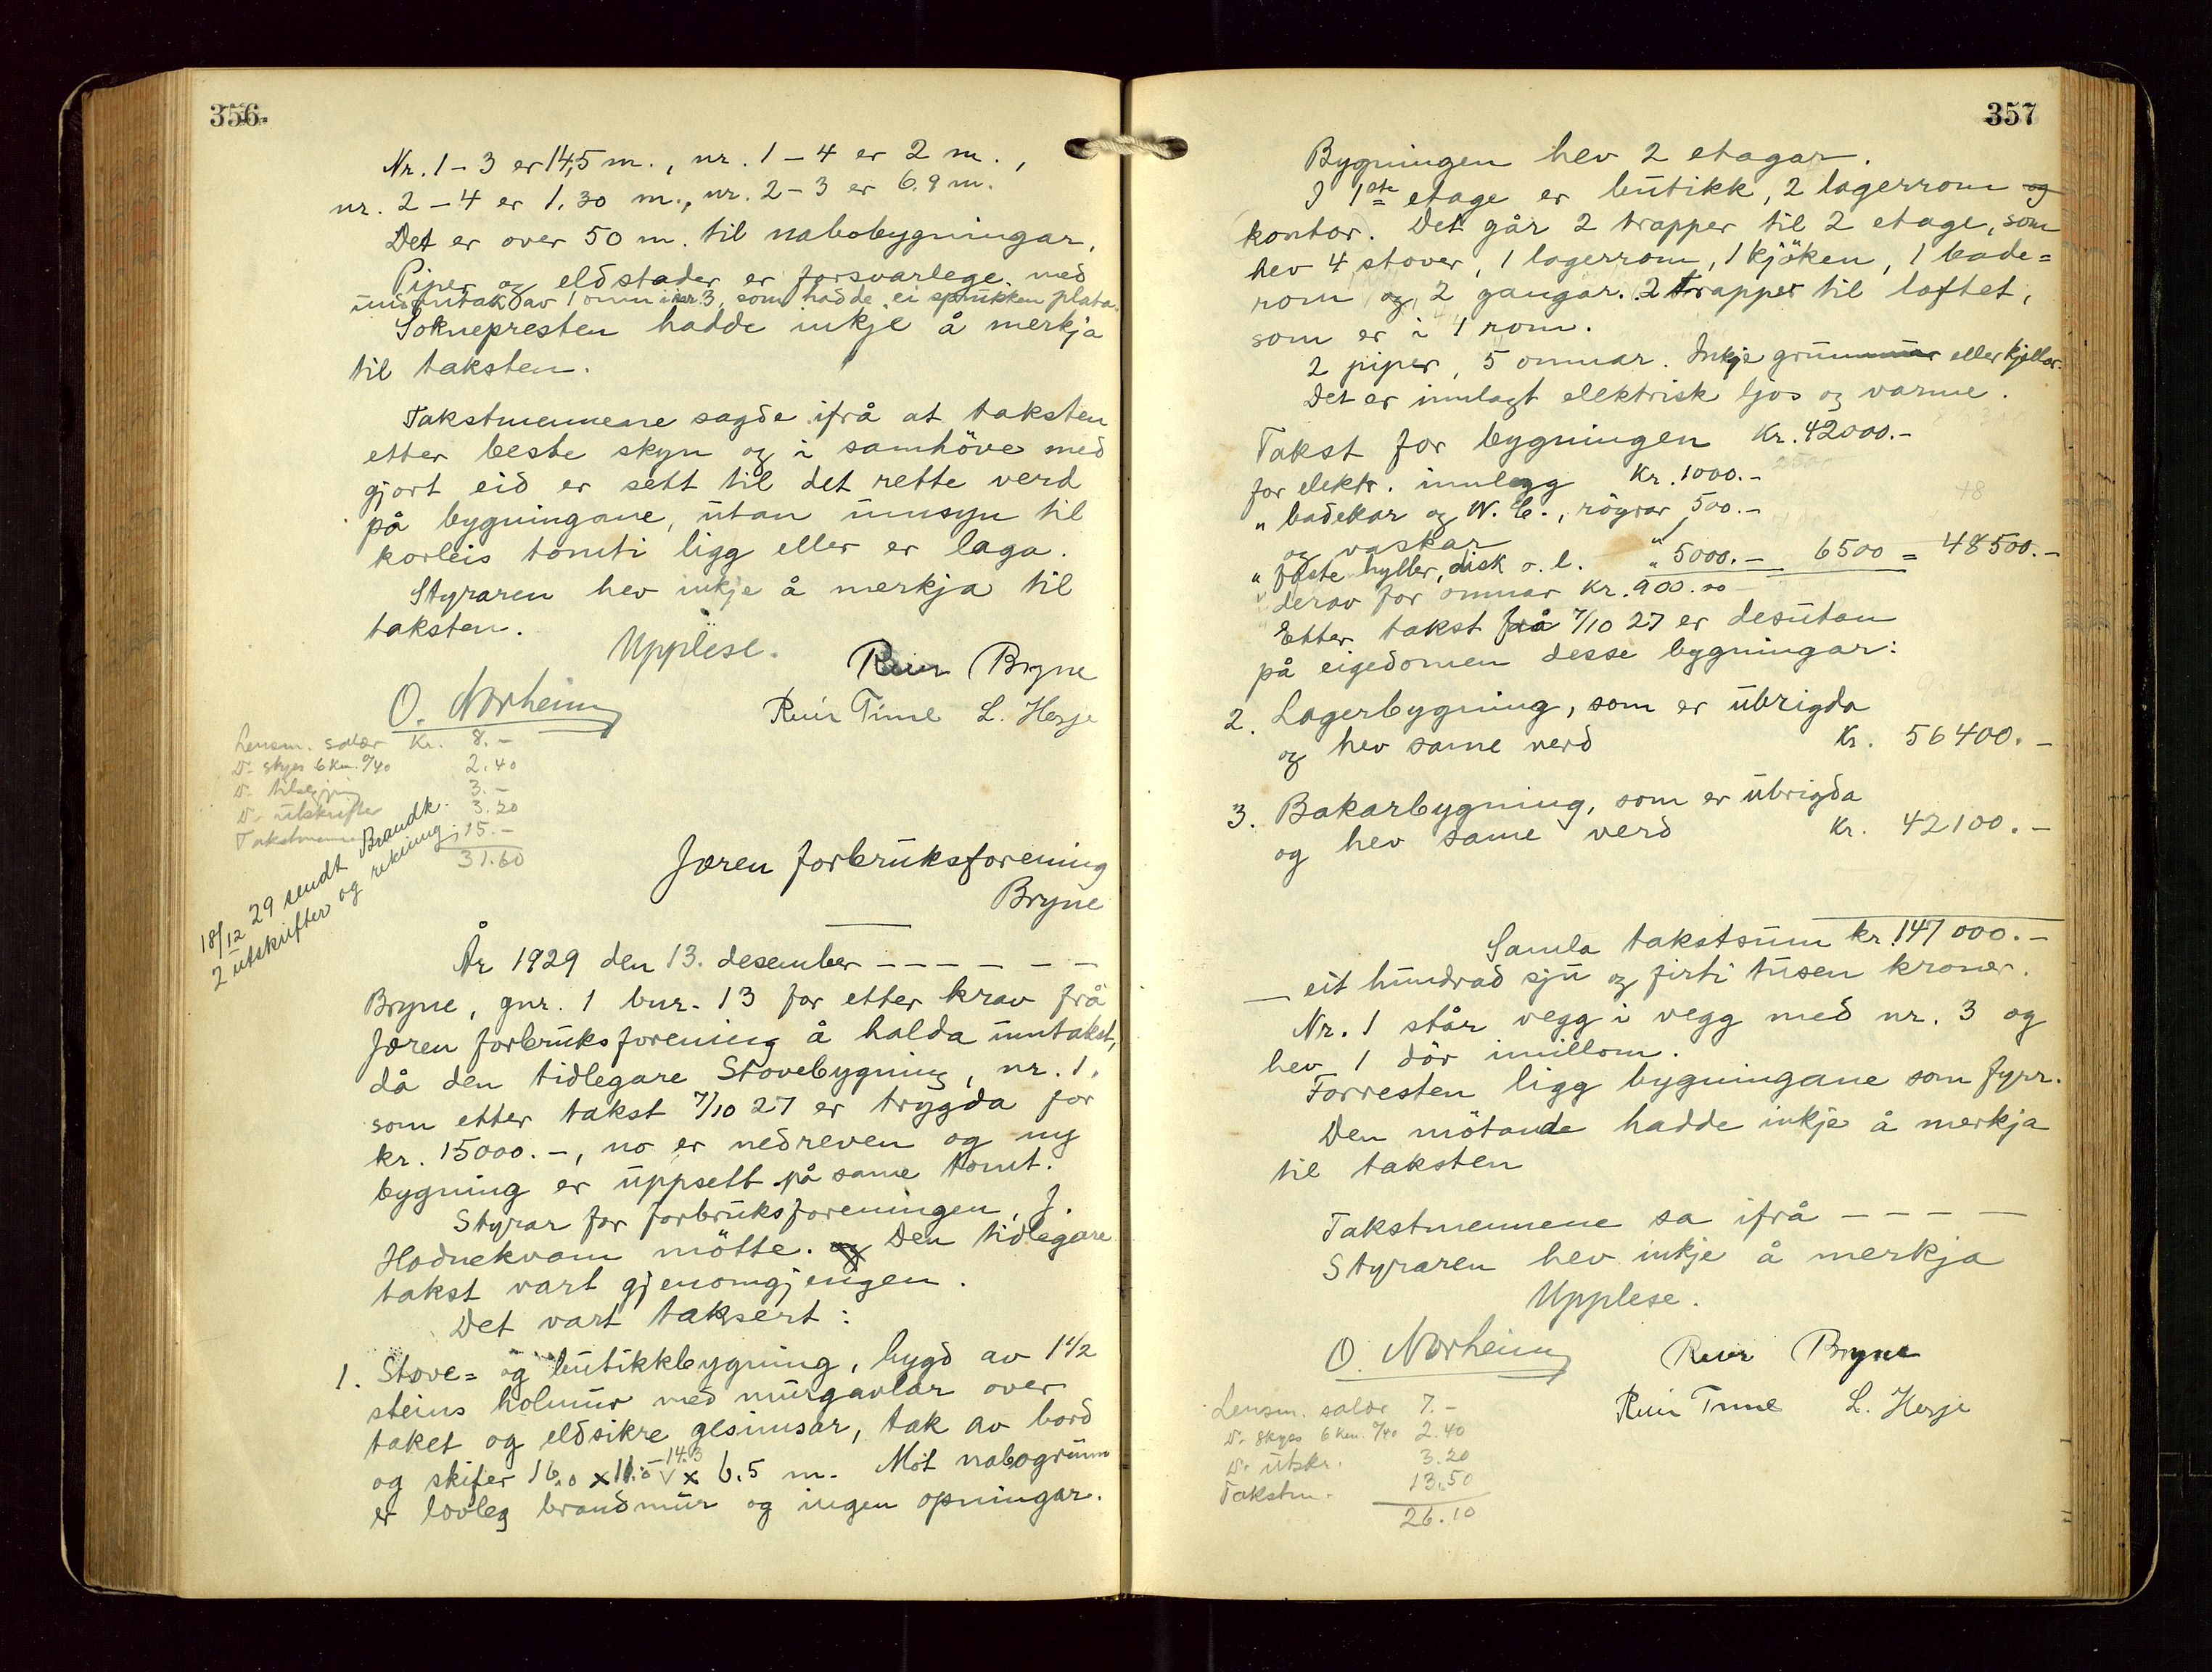 356.
Nr. 1 - 3 er 14,5 m., nr. 1 - 4 er 2 m.,
nr. 2 - 4 er 1,30 m., nr. 2 - 3 er 6.9 m.
Det er over 50 m. til nabobygningar.
Piper og eldstader er forsvarlege. med
undantak av 1 omn i nr. 3, som hadde ei sprukken plata.
Soknepresten hadde inkje å merkja
til taksten.
Takstmennene sagde ifrå at taksten
etter beste skyn og i samhöve med
gjort eid er sett til det rette verd
på bygningane, utan umsyn til
korleis tomti ligg eller er laga.
Styraren hev inkje å merkja til
taksten.
Upplese.
Reier Bryne
O. Norheim
Reier Time L. Herje
Lensm. salær Kr. 8.-
D. skyss 6 km. à/40 2.40
D. tilsegjing 3.-
D. utskrifter 3.20
Takstmenn 15.-
31.60
18/12 29 sendt Brandk.
2 utskrifter og rekning.
Jæren forbruksforening
Bryne
År 1929 den 13. desember - - - - - -
Bryne, gnr. 1 bnr. 13 for etter krav frå
Jæren forbruksforening å halda umtakst,
då den tidlegare Stovebygning, nr. 1,
som etter takst 7/10 27 er trygda for
kr. 15000.-, no er nedreven og ny
bygning er uppsett på same tomt.
Styrar for forbruksforeningen, J.
Hodnekvam mötte. og Den tidlegare
takst vart gjenomgjengen.
Det vart taksert:
1. Stove= og butikkbygning, bygd av 1 1/2
steins holmur med murgavlar over
taket og eldsikre gesimsar, tak av bord
og skifer 16.0 x 11.0 - 14.3 x 6.5 m. Mot nabogrunn
er lovleg brandmur og ingen opningar.
357
Bygningen hev 2 etagar.
I 1ste etage er butikk, 2 lagerrom og
(kontor). Det går 2 trapper til 2 etage, som
hev 4 stover, 1 lagerrom, 1 kjöken, 1 bade=
rom og 2 gangar. 2 trapper til loftet,
som er i 1 rom.
2 piper, 5 omnar. Inkje grunnmur eller kjellar.
Det er innlagt elektrisk ljos og varme.
Takst for bygningen Kr. 42000.-
for elektr. innlegg Kr. 1000.-
" badekar og W. C., röyrar 500.-
og vaskar
" faste hyller, disk o. l. " 5000.- 6500 = 48500.-
" derav for omnar Kr. 900.00
Etter takst frå 7/10 27 er desutan
på eigedomen desse bygningar:
2. Lagerbygning, som er ubrigda
og hev same verd Kr. 56400.-
3. Bakarbygning, som er ubrigda
og hev same verd Kr. 42100.-
Samla takstsum kr. 147000.-
- eit hundrad sju og firti tusen kroner.
Nr. 1 står vegg i vegg med nr. 3 og
hev 1 dör imillom.
Forresten ligg bygningane som fyrr.
Den mötande hadde inkje å merkja
til taksten
Takstmennene sa ifrå - - - -
Styraren hev inkje å merkja
Upplese.
O. Norheim Reier Bryne
Reier Time L. Herje
Lensm. salær 7.-
D. skyss 6 km. à/40 2.40
D. utskr. 3.20
Takstm. 13.50
26.10